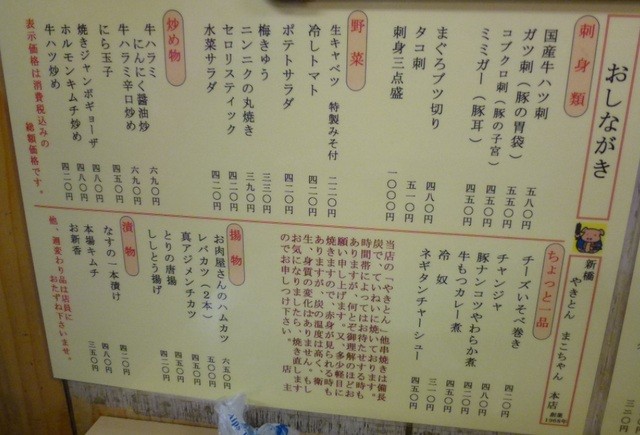 おしながき
刺身類
国産牛ハツ刺 五八〇円
ガツ刺（豚の胃袋） 五五〇円
コブクロ刺（豚の子宮） 四五〇円
ミミガー（豚耳） 四五〇円
まぐろブツ切り 四八〇円
タコ刺 五一〇円
刺身三点盛 一〇〇〇円
野菜
生キャベツ 特製みそ付 二二〇円
冷しトマト 四二〇円
ポテトサラダ 四二〇円
梅きゅう 三三〇円
ニンニクの丸焼き 三九〇円
セロリスティック 四二〇円
水菜サラダ 四二〇円
炒め物
牛ハラミ
にんにく醤油炒 六九〇円
牛ハラミ辛口炒め 六九〇円
にら玉子 四五〇円
焼きジャンボギョーザ 四八〇円
ホルモンキムチ炒め 四八〇円
牛ハツ炒め 四二〇円
表示価格は消費税込みの
総額価格です。
新橋
やきとん まこちゃん 本店
創業1968年
ちょっと一品
チーズいそべ巻き
チャンジャ 四二〇円
豚ナンコツやわらか煮 四八〇円
牛もつカレー煮 四五〇円
冷奴 三一〇円
ネギタンチャーシュー 四五〇円
当店の「やきとん」他串焼きは備長
炭で、ていねいに焼いております。
時間帯によってはお待たせする時も
ありますが、何とぞ御理解のほどお
願い申し上げます。又、多少軽目に
焼きますので、赤身が見られる時も
ありますが、炭の温度は高く、衛
生、身質の変化はありません。もし
お気になりましたら、焼き直します
のでお申しつけ下さい。 店主
揚物
お肉屋さんのハムカツ 六五〇円
レバカツ（２本） 五〇〇円
真アジメンチカツ 四五〇円
とりの唐揚 四五〇円
ししとう揚げ 四二〇円
漬物
なすの一本漬け 四二〇円
本場キムチ 四八〇円
お新香 三五〇円
他、週変わり品は店員に
おたずね下さいませ。